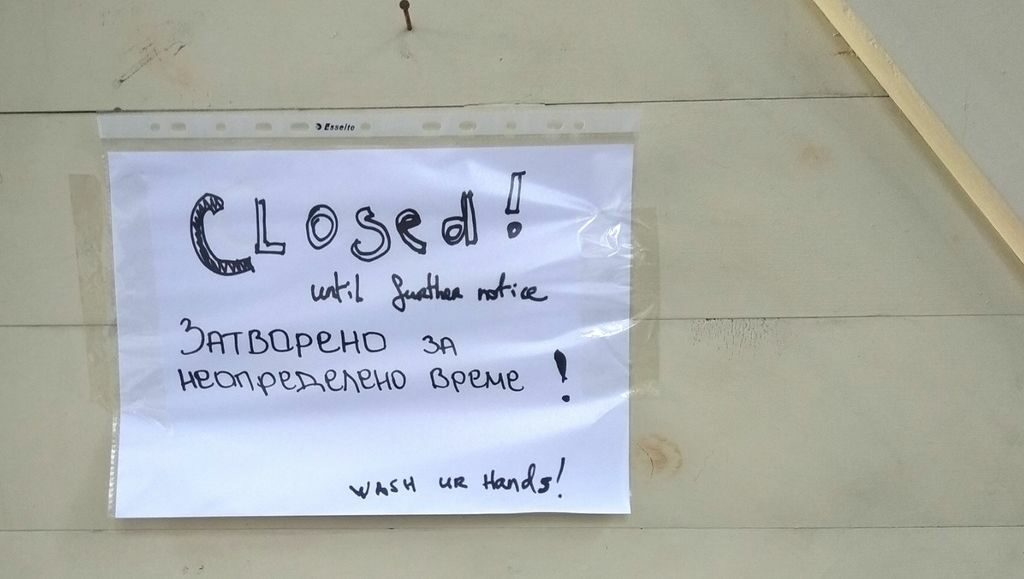 Esselte
CLOSed!
until further notice
ЗАТВОРЕНО ЗА
НЕОПРЕДЕЛЕНО ВРЕМЕ !
WASH UR Hands!